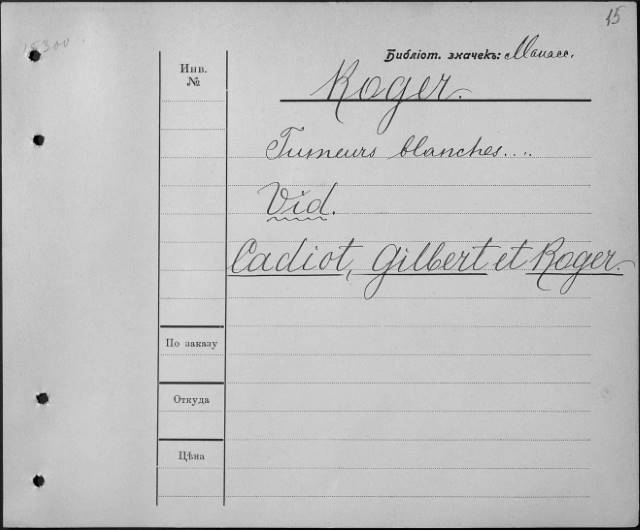 15
15300
Библіот. значекъ: Манасс.
Инв.
№
Roger.
Tumeurs blanches...
Vid.
Cadiot, Gilbert et Roger.
По заказу
Откуда
Цѣна